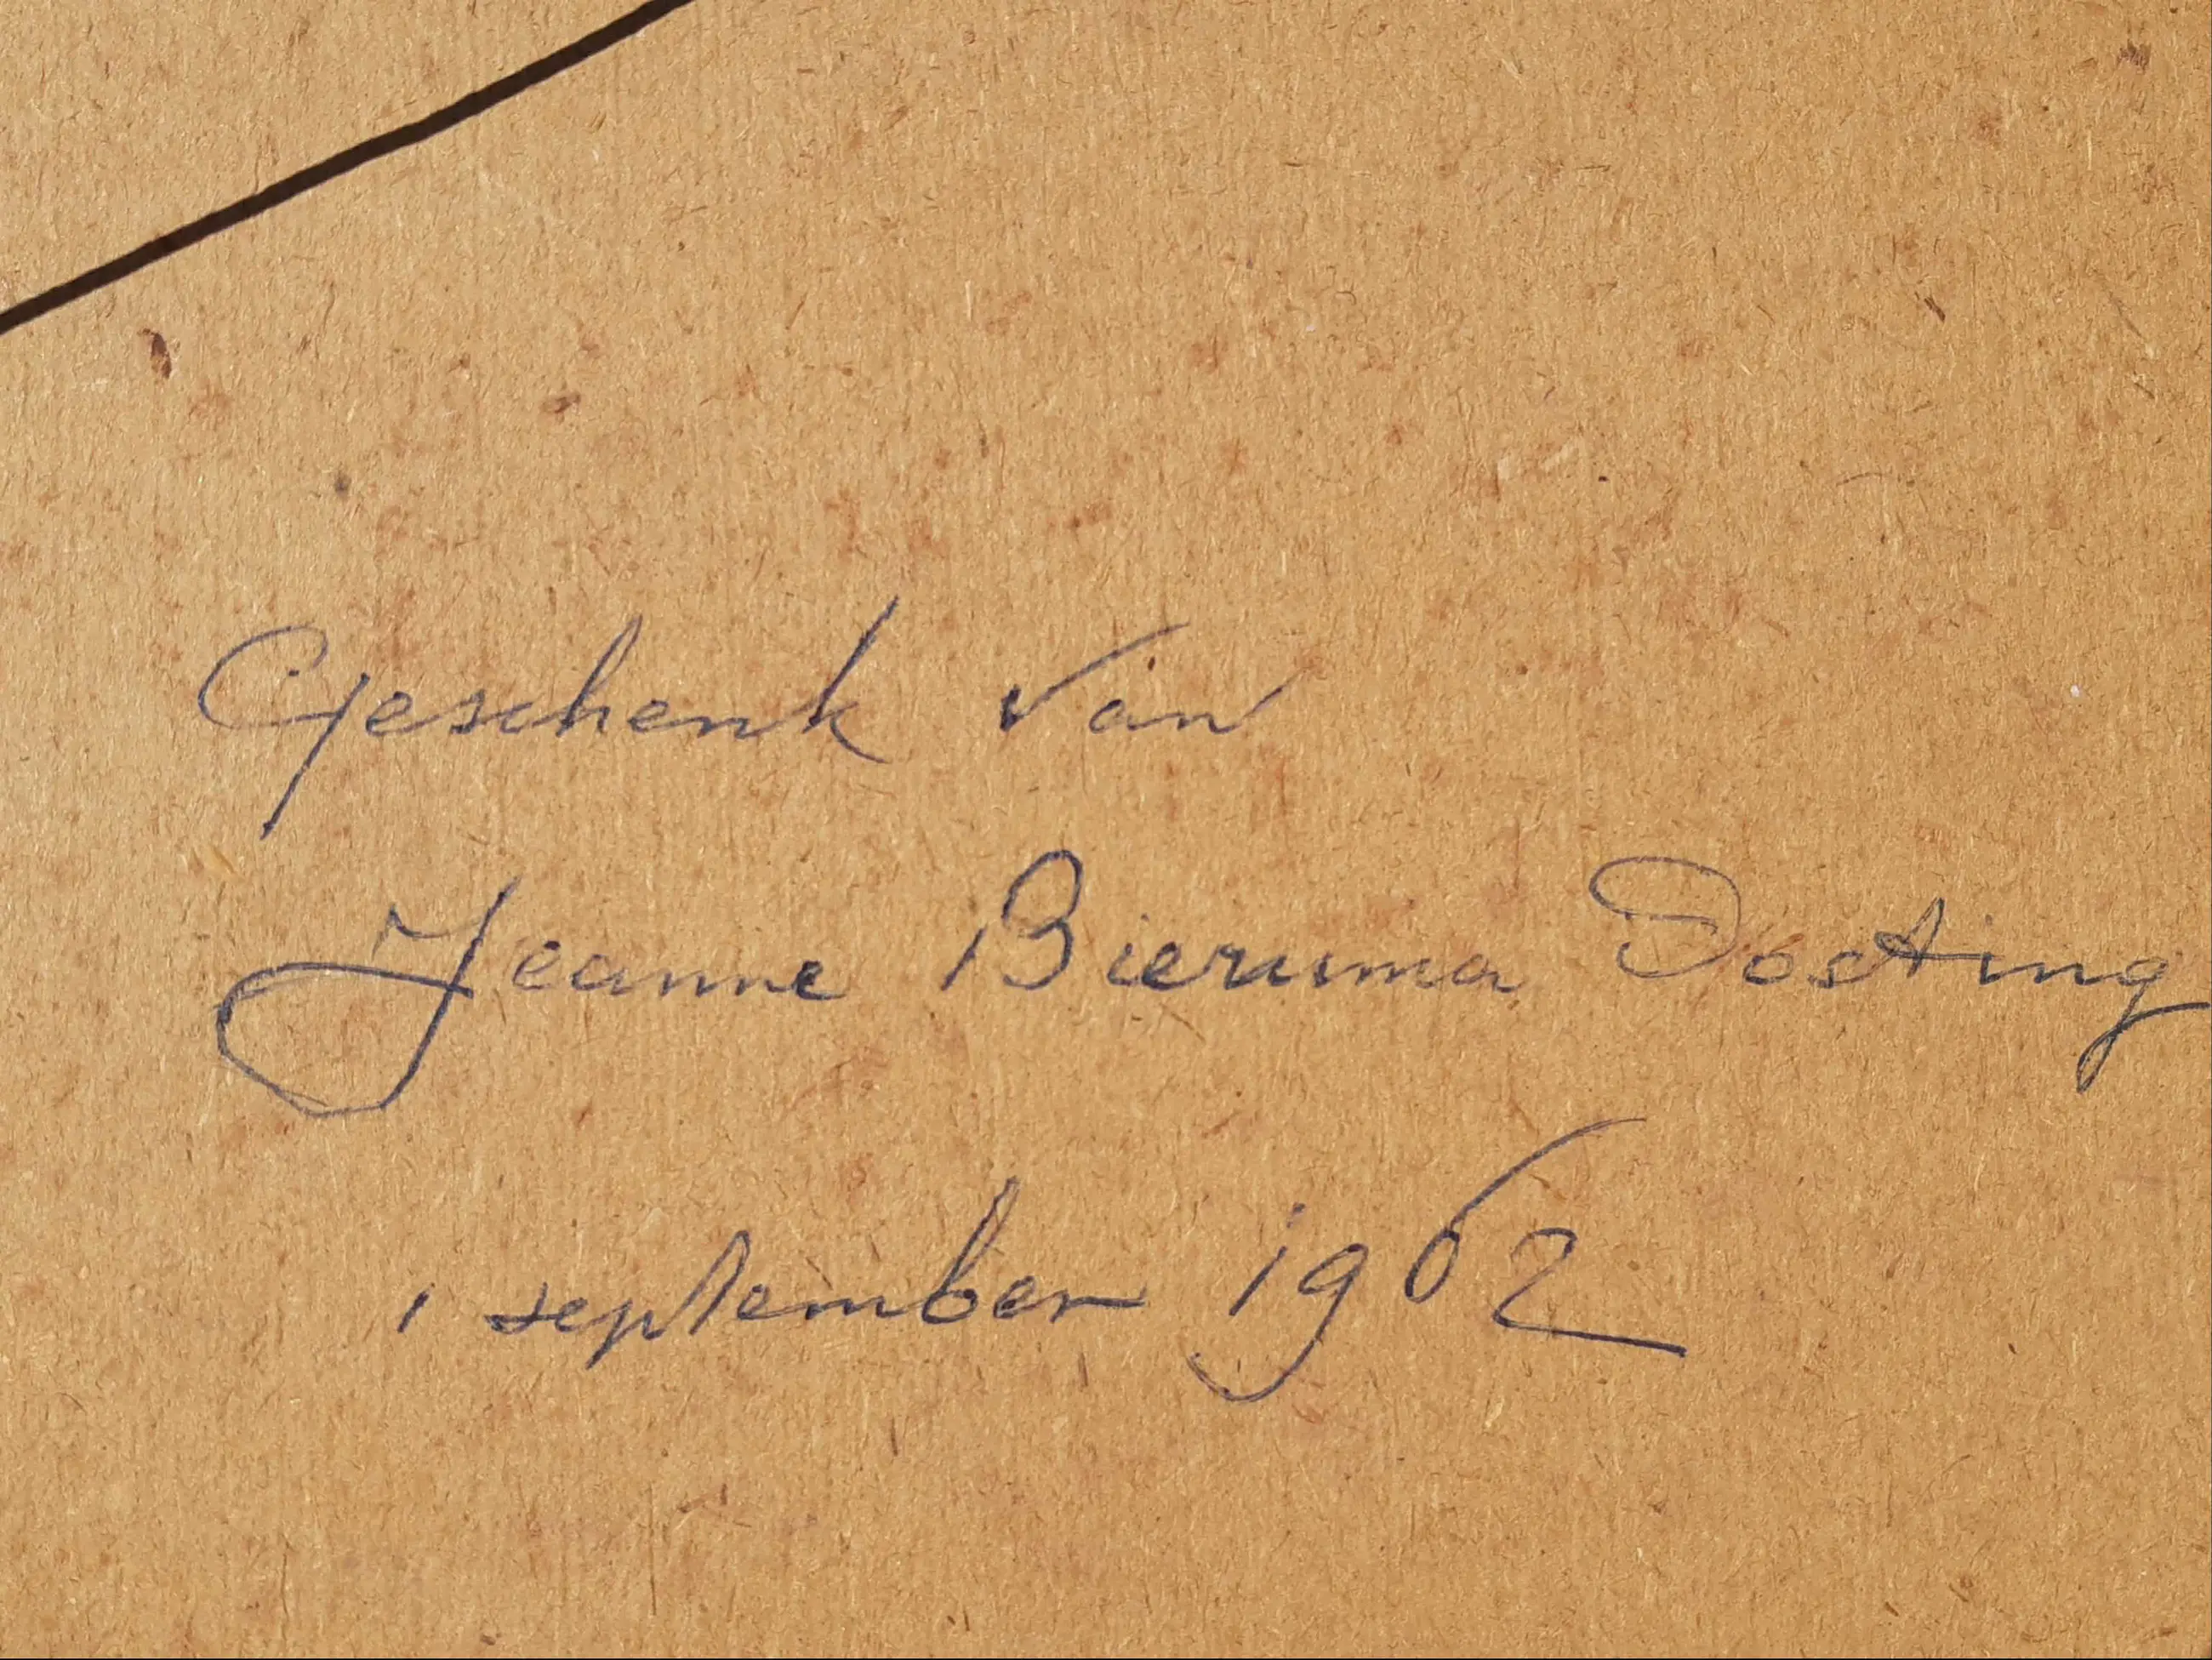 Geschenk van
Jeanne Bieruma Oosting
1 september 1962